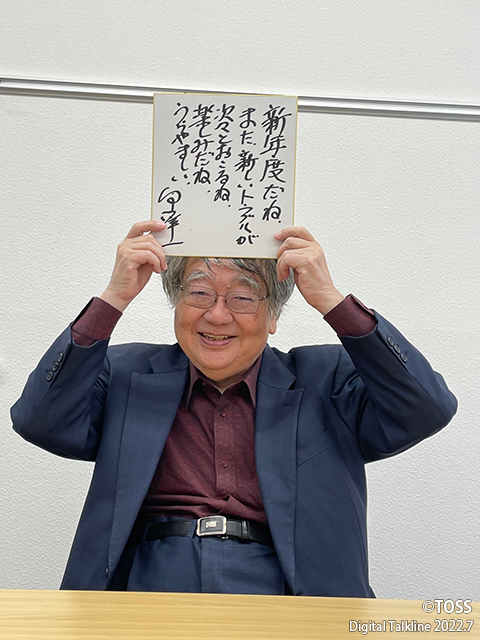 新年度だね、
また、新しいトラブルが
次々とおこるね、
楽しみだね、
うらやましい、
洋一
©TOSS
Digital Talkline 2022.7